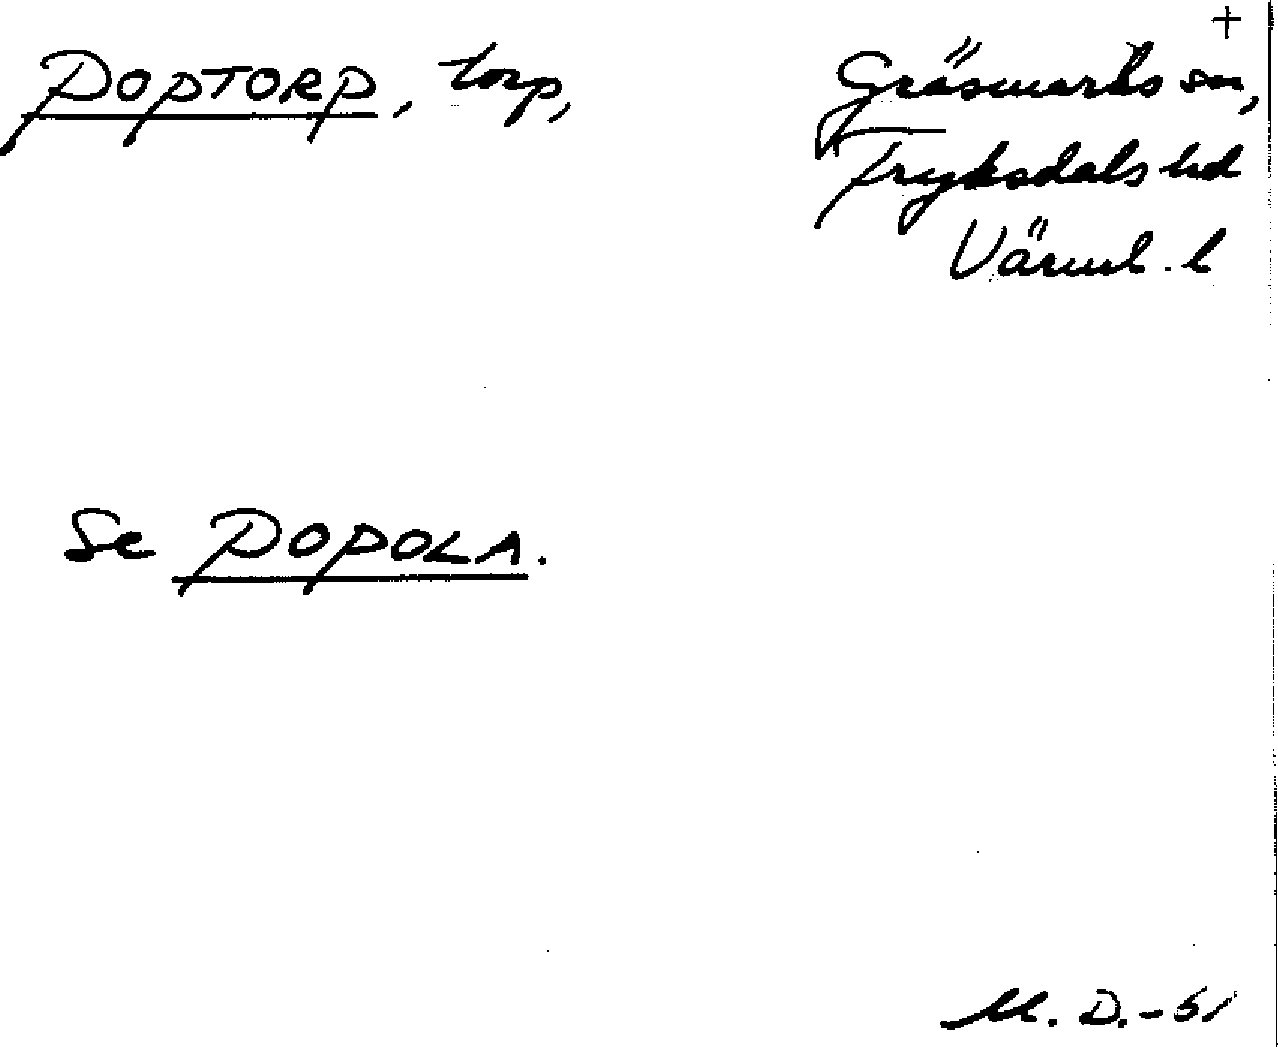 +
POPTORP, torp,
Gräsmarks sn,
Fryksdals hd
Värml. l
Se POPOLA.
M. D. -51